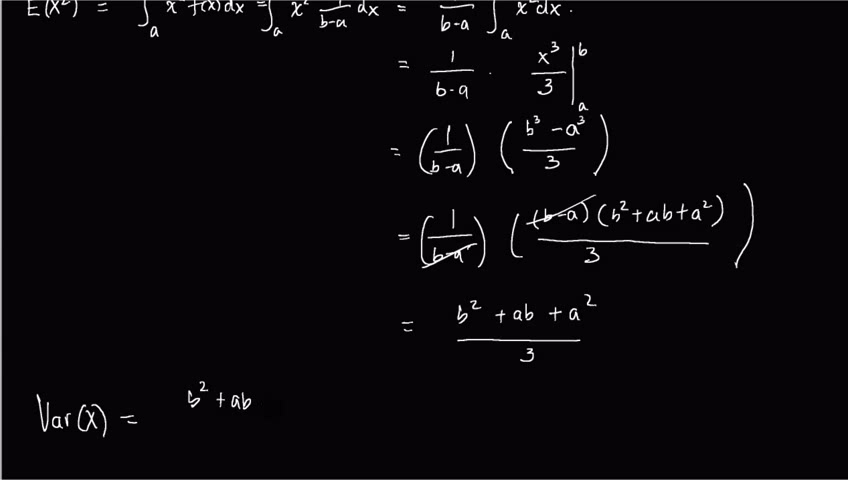 E(X²) = ∫ₐ x² f(x) dx = ∫ₐ x² 1/(b-a) dx = /(b-a) ∫ₐ x² dx.
= 1/(b-a) · x³/3 |ₐᵇ
= (1/(b-a)) ((b³ - a³)/3)
= (1/(b-a)) ((b-a)(b² + ab + a²)/3)
= (b² + ab + a²)/3
Var(X) = b² + ab